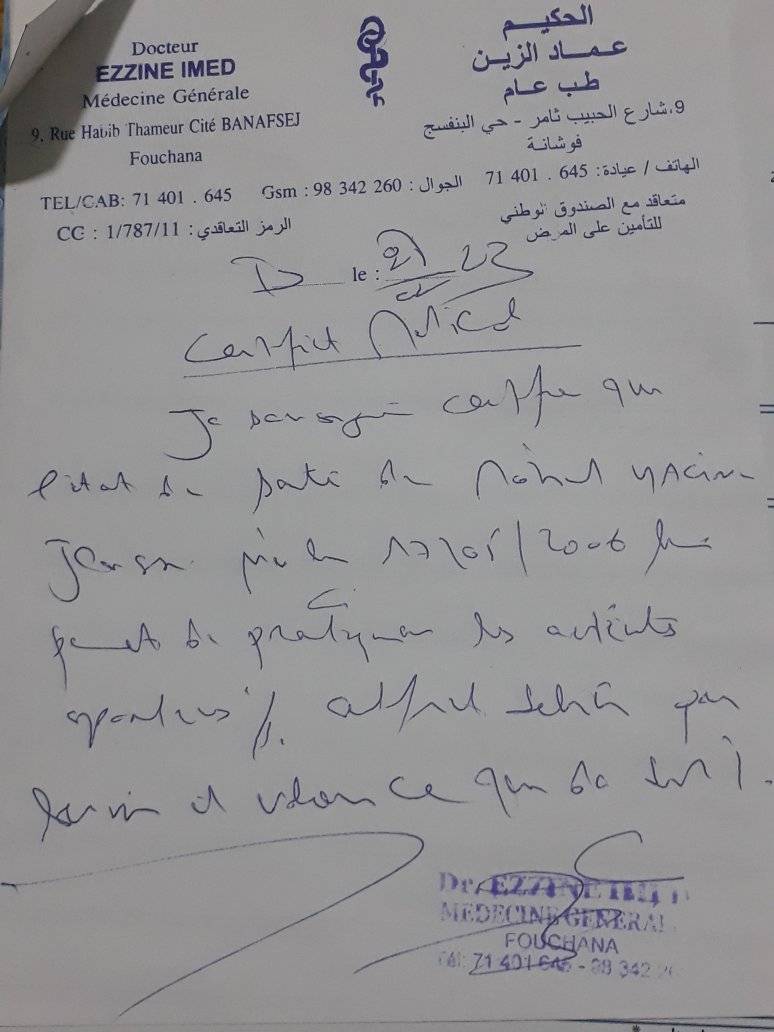 Docteur
EZZINE IMED
Médecine Générale
9, Rue Habib Thameur Cité BANAFSEJ
Fouchana
الحكيم
عماد الزين
طب عام
9،شارع الحبيب ثامر - حي البنفسج
فوشانة
TEL/CAB: 71 401 . 645 Gsm : 98 342 260 : الجوال 71 401 . 645 : الهاتف / عيادة
CC : 1/787/11 : الرمز التعاقدي
متعاقد مع الصندوق الوطني
للتأمين على المرض
le : 23
Certificat Médical
Je soussigné certifie que
l'état de santé de Mohamed Yacine
17/05/2006 lui
permet de pratiquer les activités
sportives. certificat délivré pour
servir et valoir ce que de droit.
Dr. EZZINE IMED
MEDECINE GENERAL
FOUCHANA
Tél: 71 401 645 - 98 342 26